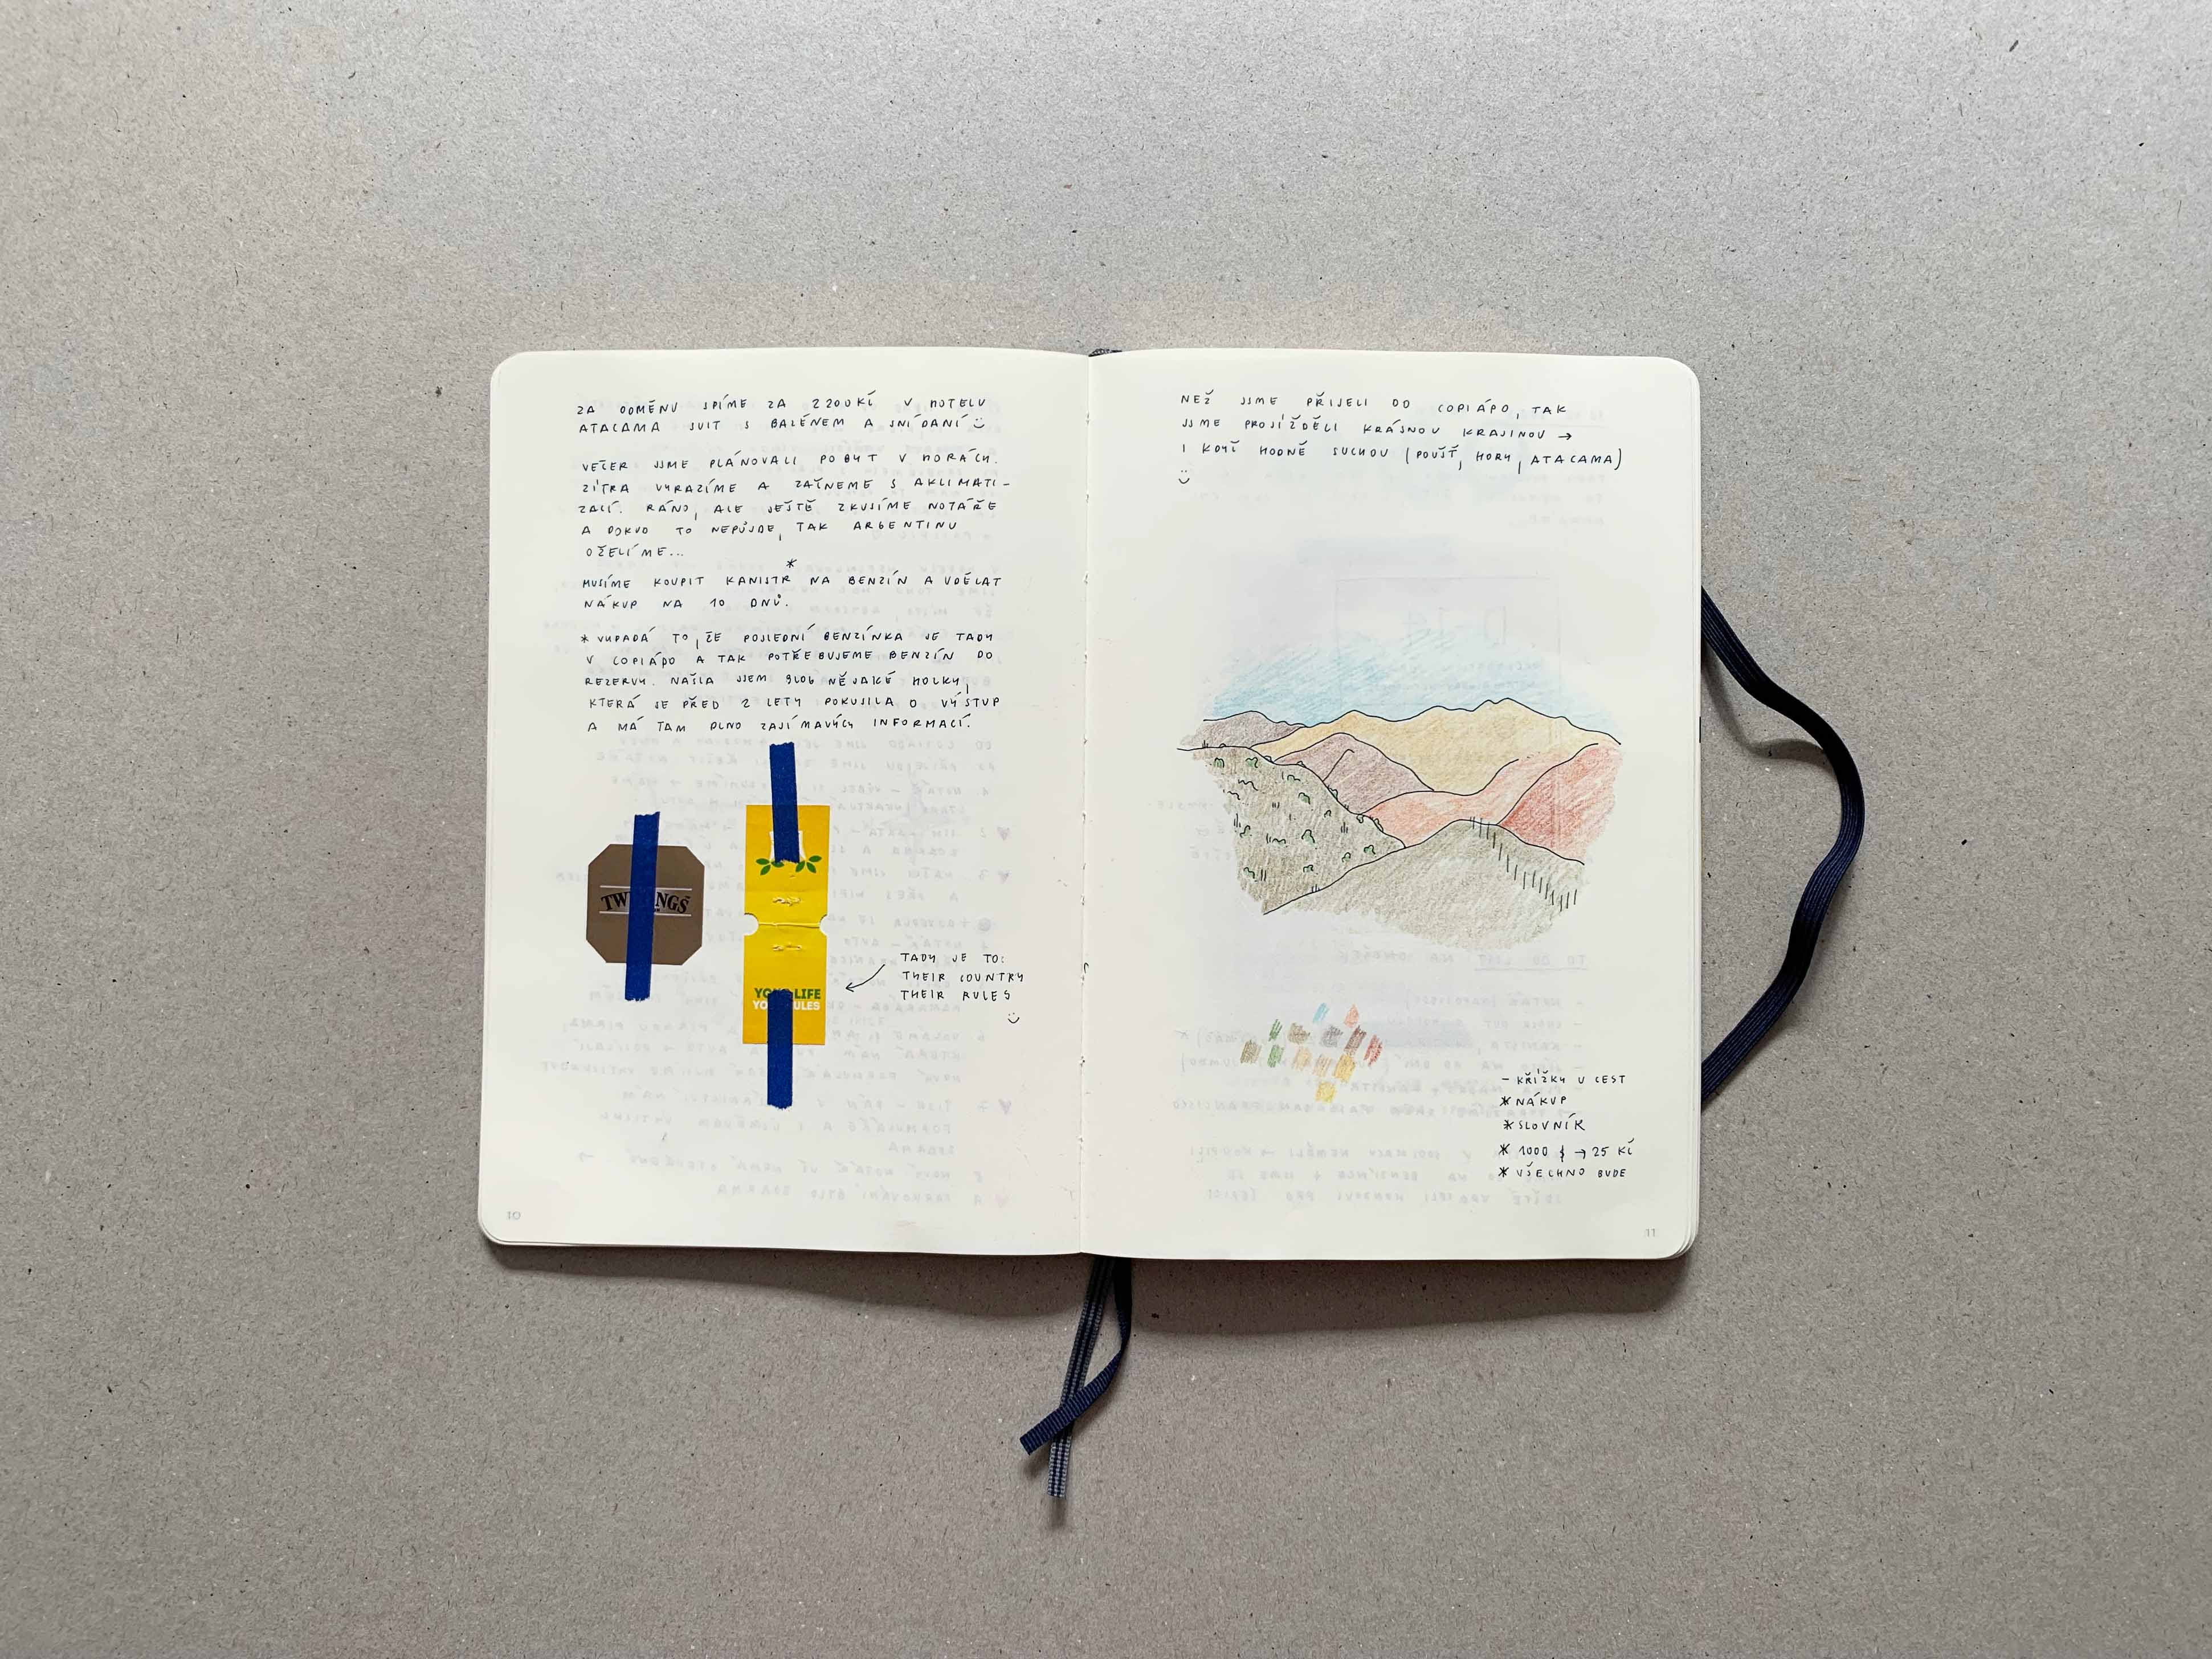 ZA ODMĚNU SPÍME ZA 2200 KČ V HOTELU
ATACAMA SUIT S BAZÉNEM A SNÍDANÍ
VEČER JSME PLÁNOVALI POBYT V HORÁCH.
ZÍTRA VYRAZÍME A ZAČNEME S AKLIMATI-
ZACÍ. RÁNO, ALE JEŠTĚ ZKUSÍME NOTÁŘE
A POKUD TO NEPŮJDE, TAK ARGENTINU
OŽELÍME...
*
MUSÍME KOUPIT KANISTR NA BENZÍN A UDĚLAT
NÁKUP NA 10 DNŮ.
* VYPADÁ TO, ŽE POSLEDNÍ BENZÍNKA JE TADY
V COPIÁPO A TAK POTŘEBUJEME BENZÍN DO
REZERVY. NAŠLA JSEM BLOG NĚJAKÉ HOLKY,
KTERÁ SE PŘED 2 LETY POKUSILA O VÝSTUP
A MÁ TAM PLNO ZAJÍMAVÝCH INFORMACÍ.
TW NGS
YO LIFE
YO ULES
TADY JE TO:
THEIR COUNTRY
THEIR RULES
10
NEŽ JSME PŘIJELI DO COPIÁPO, TAK
JSME PROJÍŽDĚLI KRÁSNOU KRAJINOU →
I KDYŽ HODNĚ SUCHOU (POUŠŤ, HORY, ATACAMA)
- KŘÍŽKY U CEST
* NÁKUP
* SLOVNÍK
* 1000 $ → 25 KČ
* VŠECHNO BUDE
11